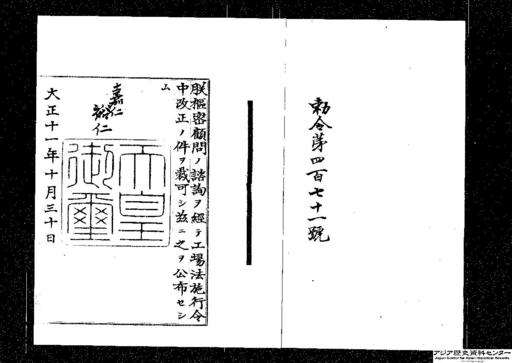 勅令第四百七十一號
朕樞密顧問ノ諮詢ヲ經テ工場法施行令
中改正ノ件ヲ裁可シ玆ニ之ヲ公布セシ
ム
嘉仁
裕仁
天皇
御璽
大正十一年十月三十日
アジア歴史資料センター
Japan Center for Asian Historical Records